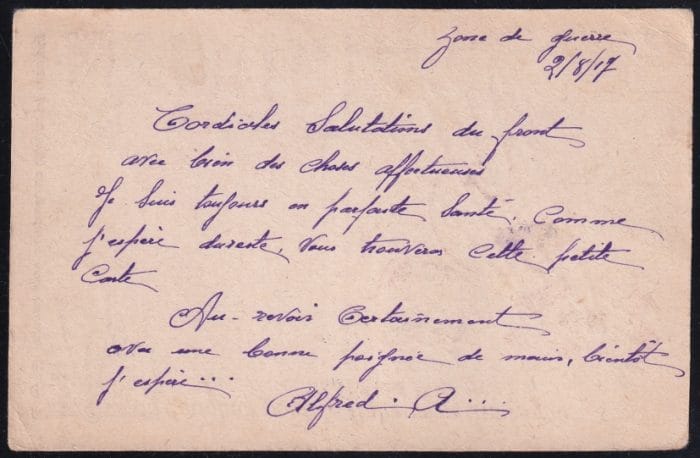 Zone de guerre
2/8/17
Cordiales Salutations du front
avec bien des choses affectueuses
Je suis toujours en parfaite Santé, Comme
j'espère dureste, Vous trouveras Cette petite
Carte
Au-revoir Certainement
avec une bonne poignée de main, bientôt
j'espère...
Alfred. A...